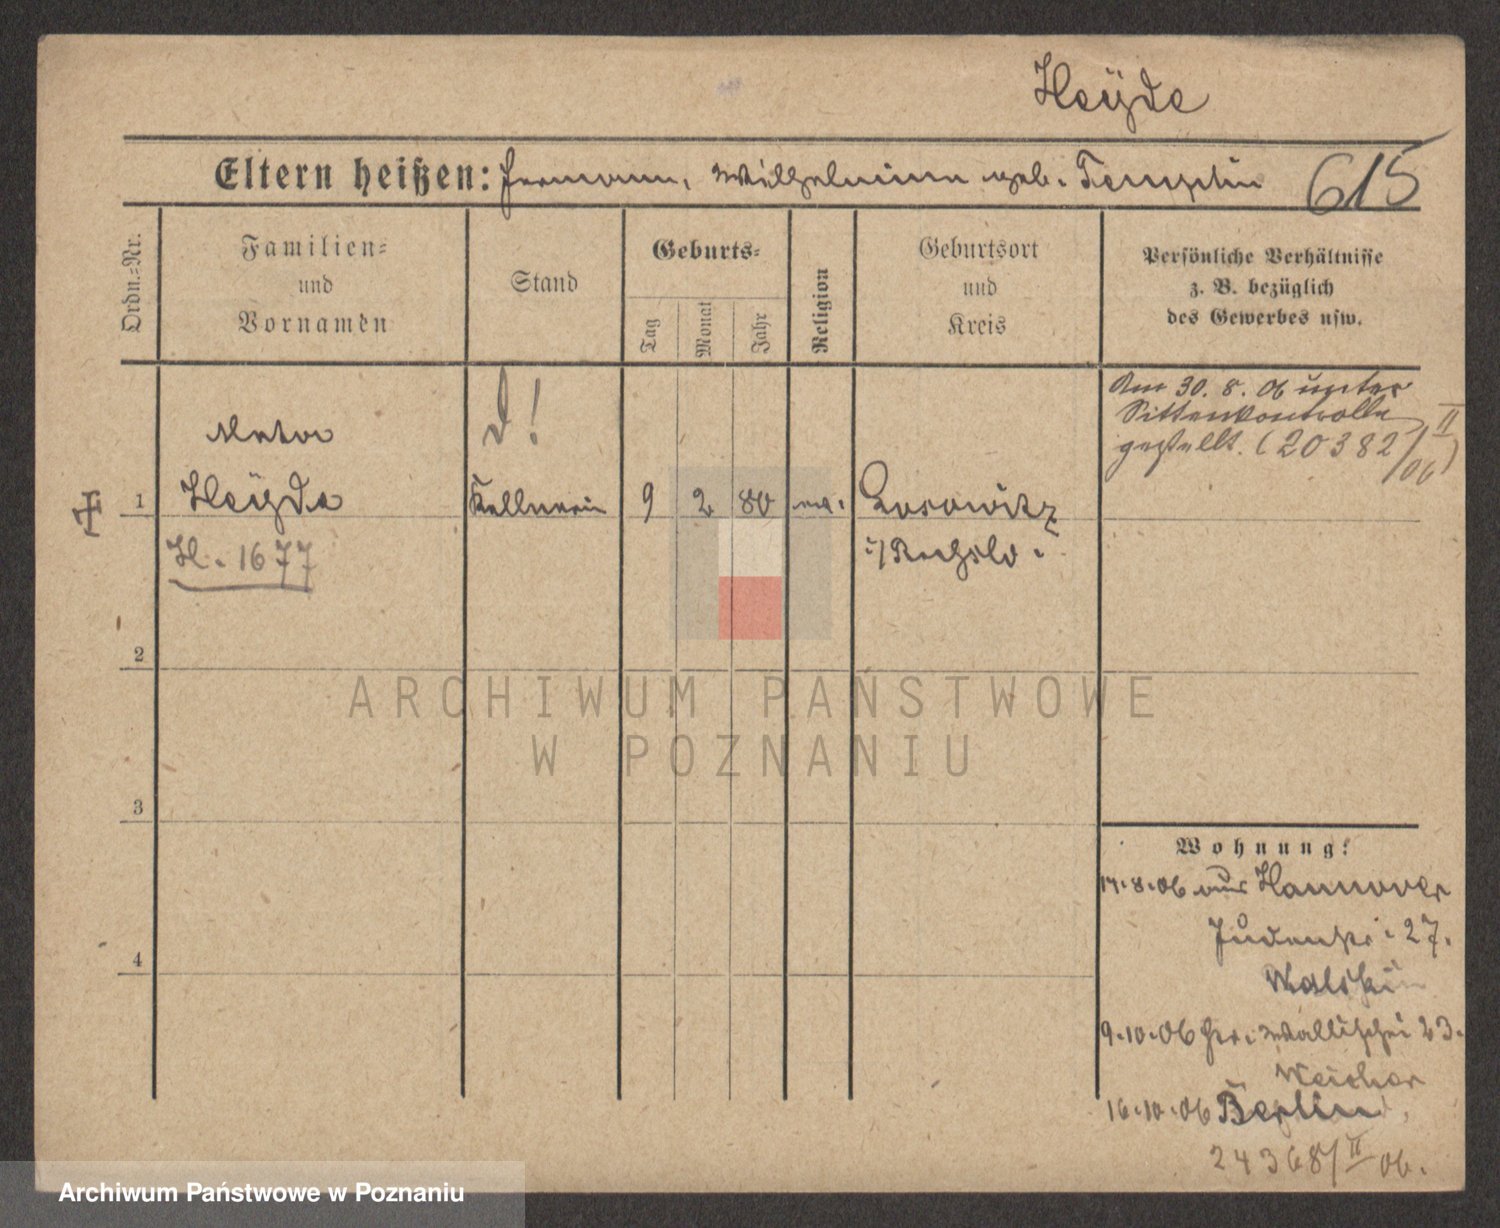 Heÿde
Eltern heißen: Hermann, Wilhelmine geb. Templin
615
Ordn.-Nr.
Familien-
und
Vornamen
Stand
Geburts-
Tag
Monat
Jahr
Religion
Geburtsort
und
Kreis
Persönliche Verhältnisse
z. B. bezüglich
des Gewerbes usw.
Am 30. 8. 06 unter
Sittenkontrolle
gestellt. (20382/II 06)
D!
1
Heÿde
Kellnerin
9
2
80
ev.
H. 1677
2
3
4
Wohnung:
17.8.06 aus Hannover
Judenstr. 27.
9.10.06 Gr. Wallischei 23.
Weicher
16.10.06 Berlin
24368/II 06.
ARCHIWUM PAŃSTWOWE
W POZNANIU
Archiwum Państwowe w Poznaniu